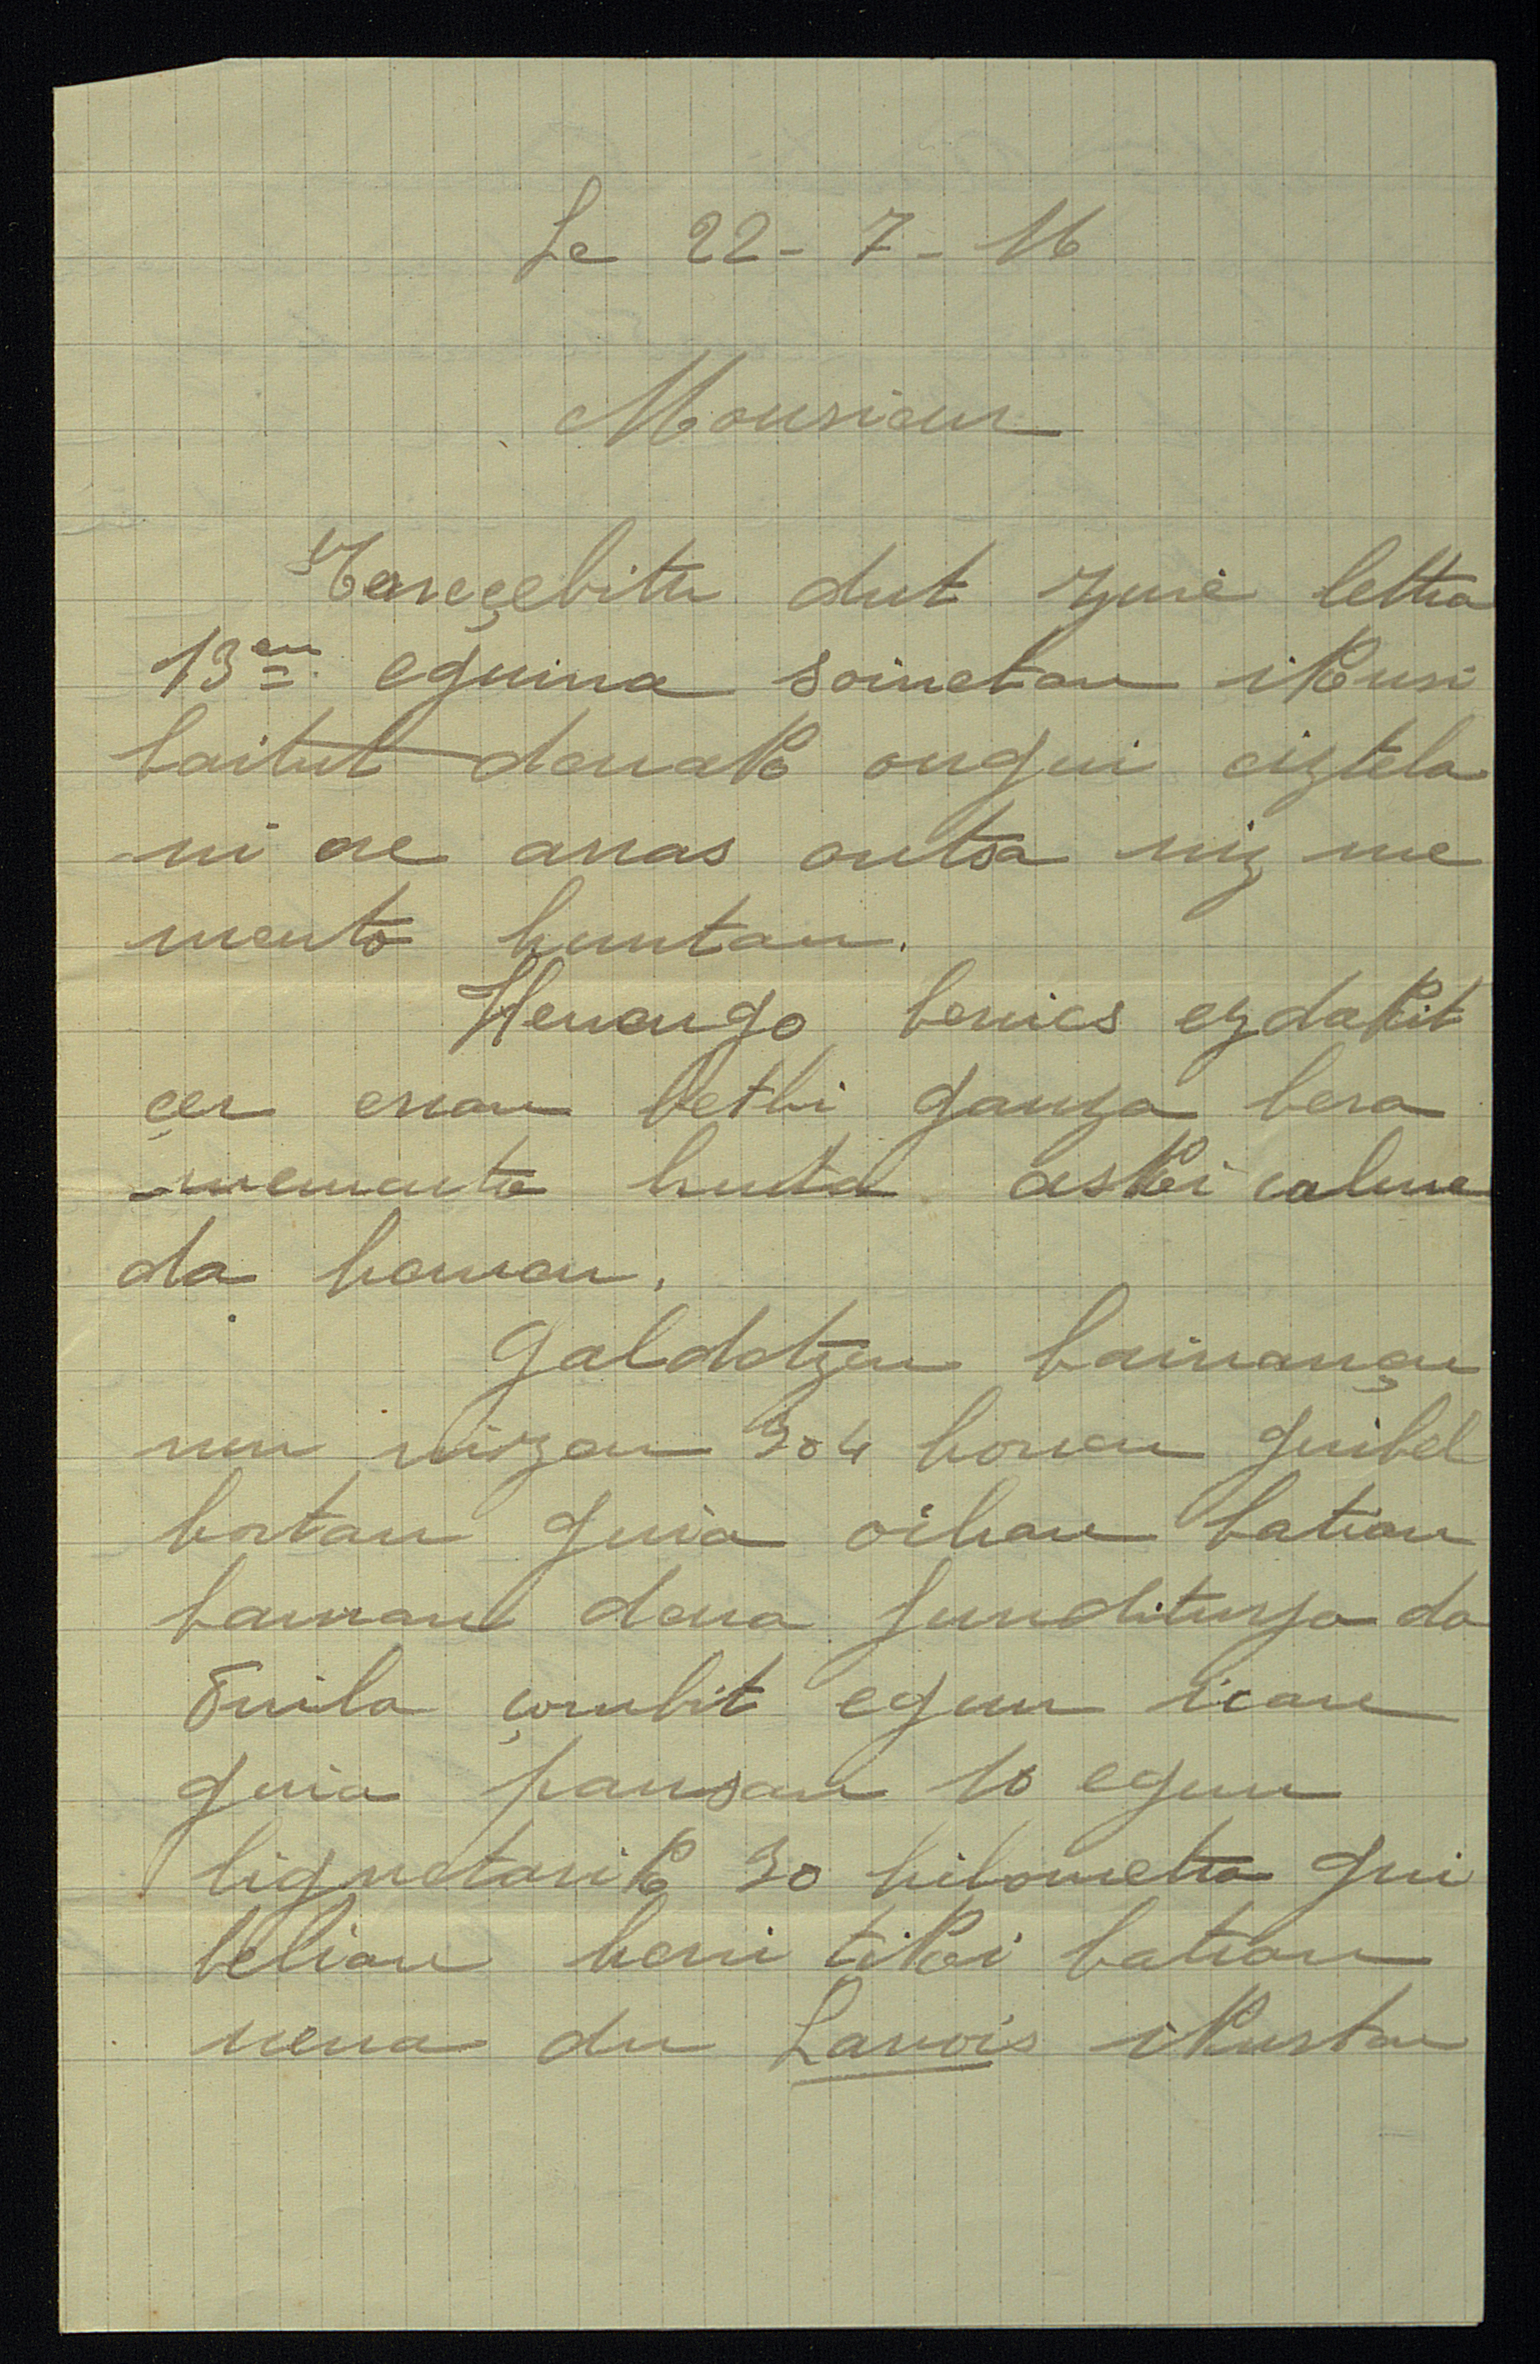 Le 22 - 7 - 16
Monsieur
Erreçebitu dut zure lettra
13en eguina soinetan ikusi
baitut denak ongui ciztela
ni ere arras ontsa niz me
mento huntan.
Hemengo berrics ezdakit
çer erran bethi gauza bera
memento hunta aski calme
da heman.
Galdetzen bainançu
nun nizan 304 horren guibel
hortan guira oihan batian
bainan dena funditurya da
Duila çombit egun ican
guira pausan 10 egun
lignetarik 30 kilometra gui
belian herri tiki batian
nena du Lanois ikustan